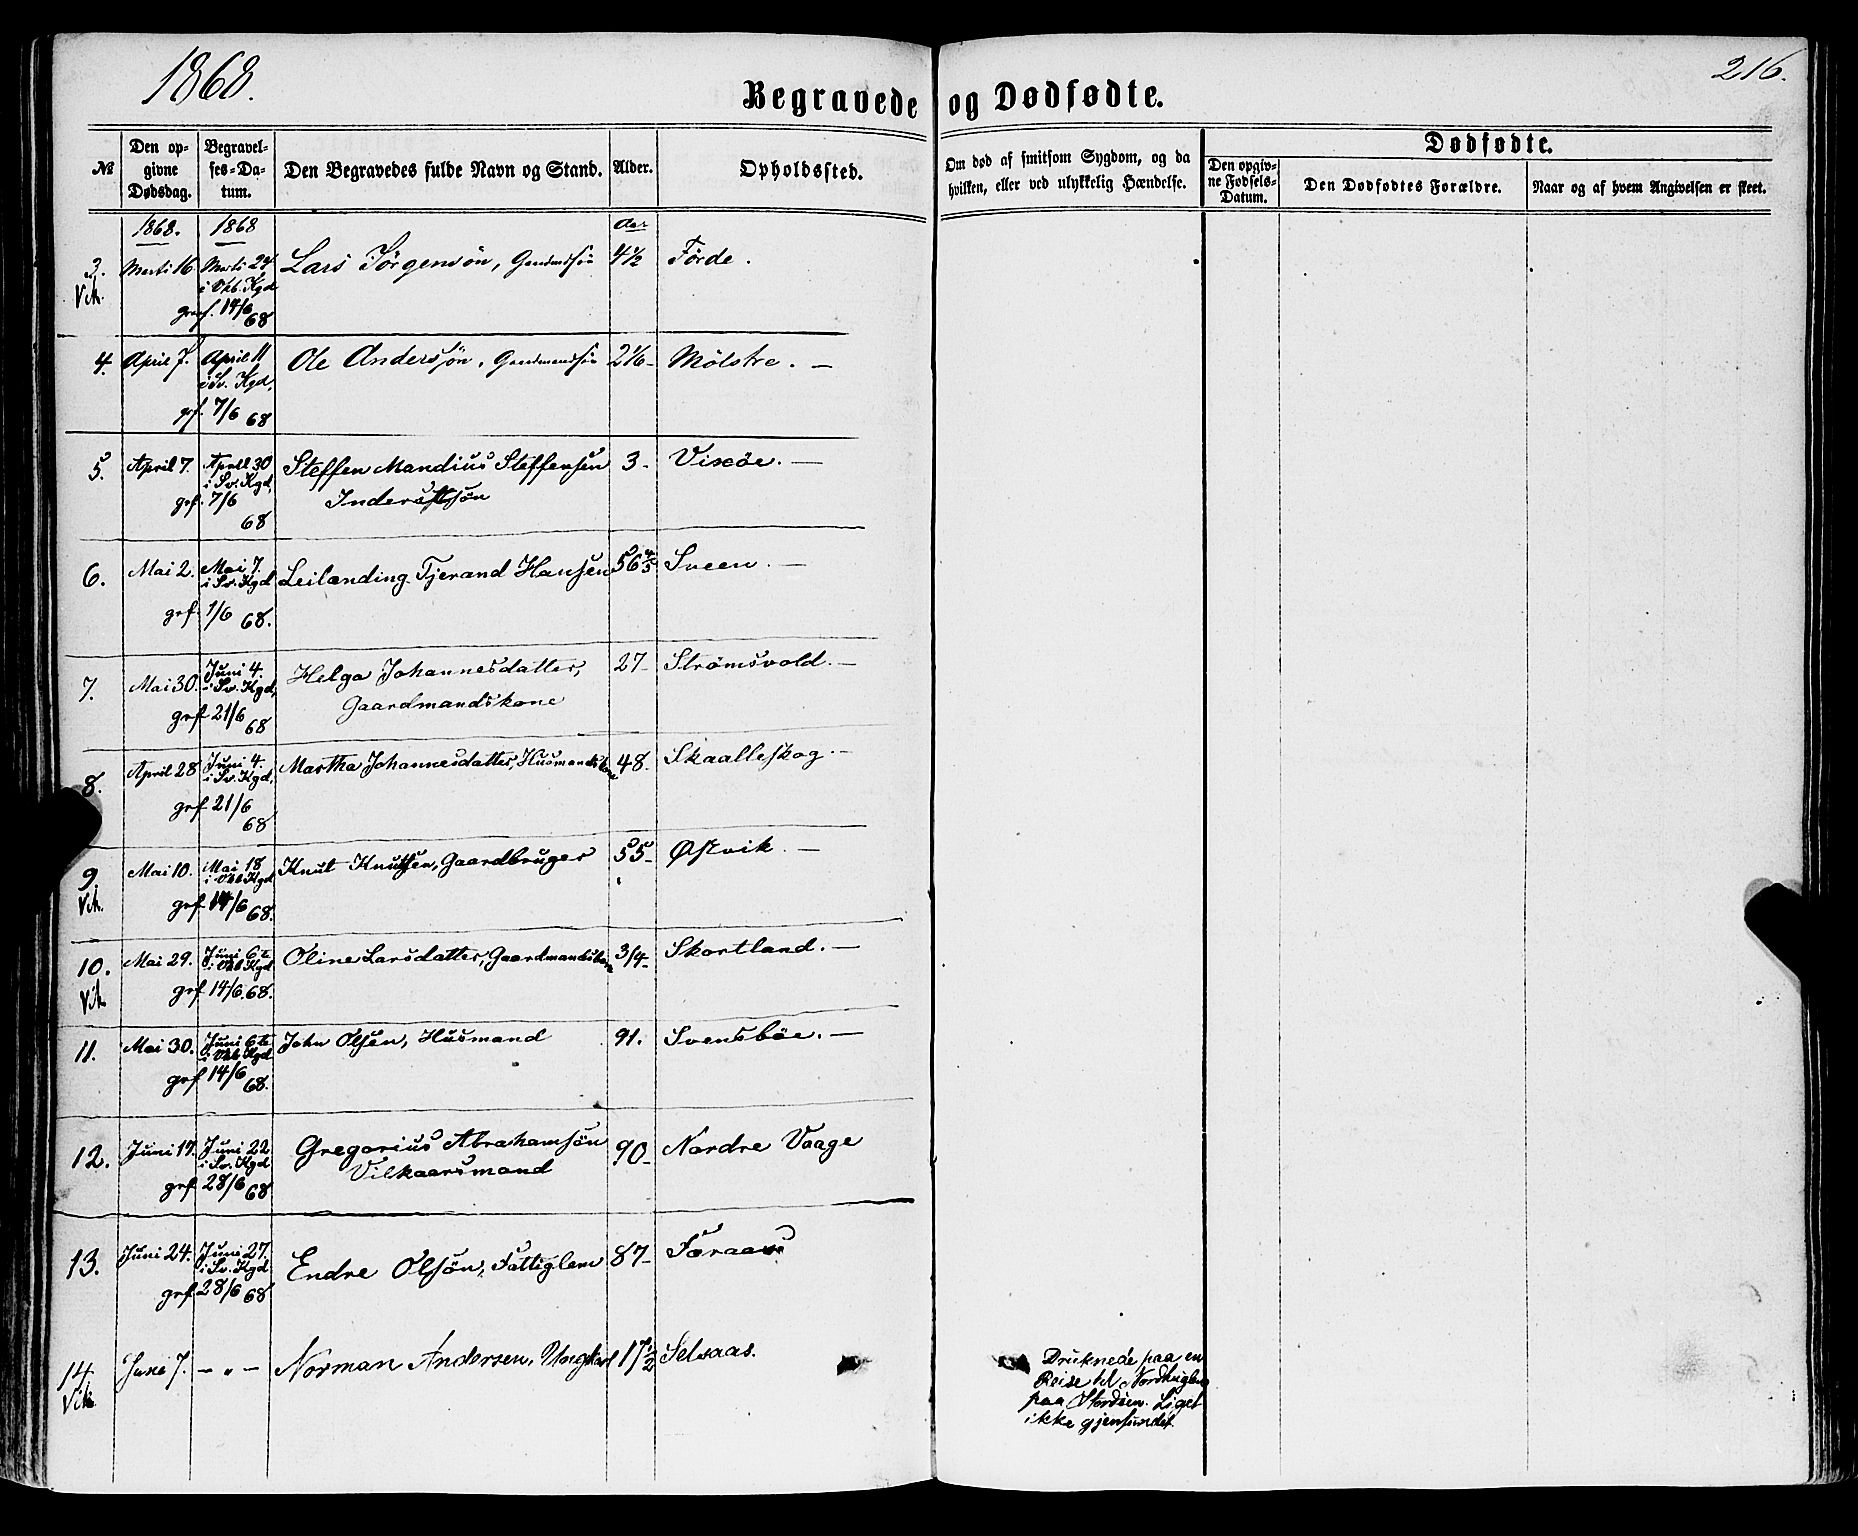 1868.
216.
Begravede og Dødfødte.
№
Den opgivne Dødsdag.
Begravelses-Datum.
Den Begravedes fulde Navn og Stand.
Alder.
Opholdssted.
Om død af smitsom Sygdom, og da hvilken, eller ved ulykkelig Hændelse.
Dødfødte.
Den opgivne Fødsels-Datum.
Den Dødfødtes Forældre.
Naar og af hvem Angivelsen er skeet.
1868. 1868 Aar
3. Marti 16 Marti 24 Lars Jørgensön, Gaardmandssön 4½ Förde.
Vik. i Vkb. Kgd
grf. 14/6 68
4. April 7. April 11 Ole Anderssön, Gaardmandssön 2 1/6 - Mölstre. —
i Sv. Kgd,
grf. 7/6 68
5. April 7. April 30 Steffen Mandius Steffensen 3 - Vixöe. —
i Sv. Kgd, Inderstsøn
grf. 7/6
68
6. Mai 2. Mai 7. Leilænding Tjerand Hansen 56 Sveen. —
i Sv. Kgd
grf. 1/6 68.
7. Mai 30. Juni 4. Helga Johannesdatter, 27 - Strömsvold. —
i Sv. Kgd, Gaardmandskone
grf 21/6 68
8. April 28 Juni 4. Martha Johannesdatter, Husmandskone 48. Skaalleskog. —
i Sv. Kgd,
grf 21/6
68
9. Mai 10. Mai 18 Knut Knutsen, Gaardbruger 55 - Østvik. —
Vik. i Vkb Kgd
grf 14/6 68.
10. Mai 29. Juni 6te Oline Larsdatter, Gaardmandsbarn 3/4 - Skortland. —
Vik i Vkb Kgd
grf 14/6.68.
11. Mai 30. Juni 6te John Olsen, Husmand 91. Svensböe. —
i Vkb Kgd
grf 14/6 68.
12. Juni 17. Juni 22 Gregorius Abrahamsön 90 - Nordre Vaage
i Sv. Kgd Vilkaarsmand
grf 28/6 68
13. Juni 24. Juni 27. Endre Olsön, Fattiglem 87 -
i Sv. Kgd
grf 28/6 68
14. June 7. — " — Norman Andersen, Ungkarl 17½ Selsaas. Druknede paa en
Vik Reise til
paa Ligel
ikke gjenfundet.